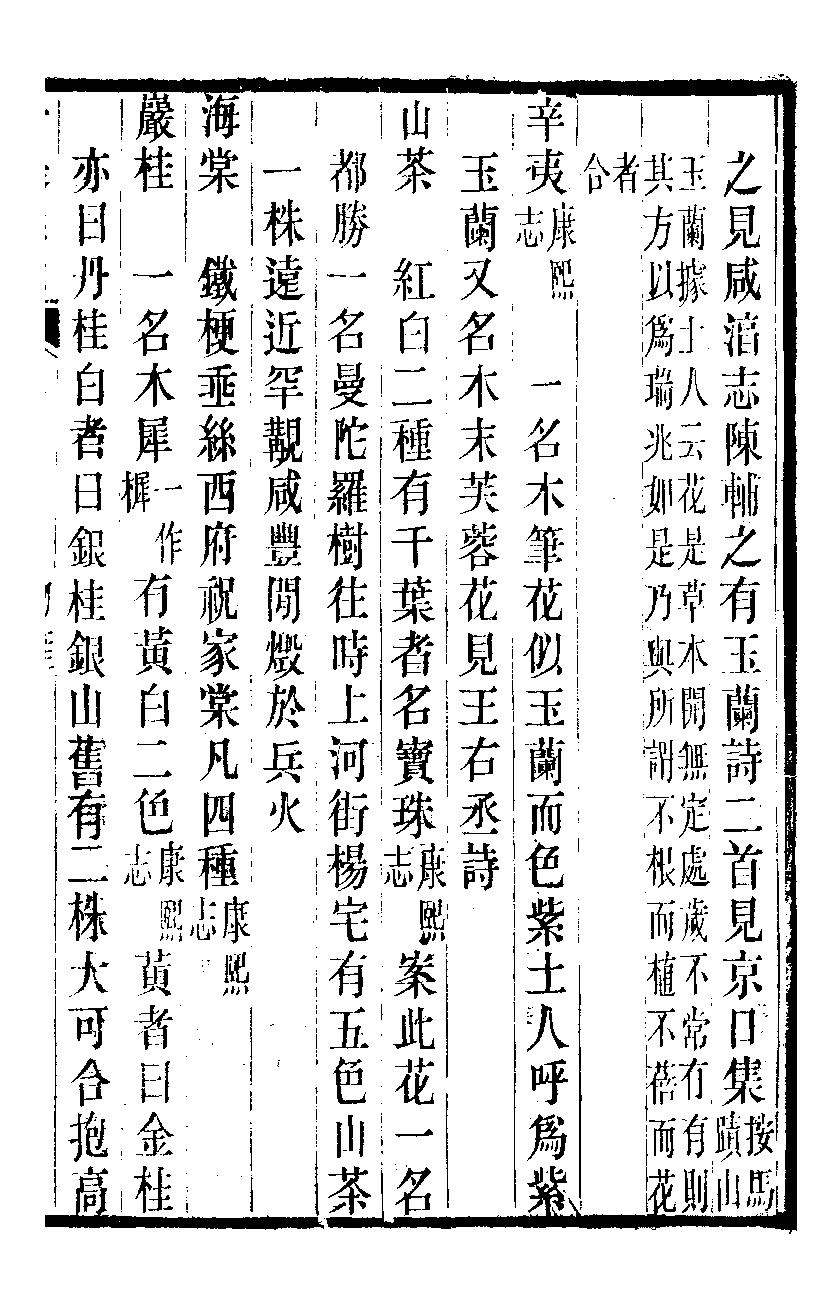 之見咸湻志陳輔之有玉蘭詩二首見京口集按馬蹟山
玉蘭據土人云花是草本開無定處歲不常有有則
其方以爲瑞兆如是乃與所謂不根而植不蓓而花
者合
辛夷康熙志　一名木筆花似玉蘭而色紫土人呼爲紫
玉蘭又名木末芙蓉花見王右丞詩
山茶　紅白二種有千葉者名寶珠康熙志　案此花一名
都勝一名曼陀羅樹往時上河街楊宅有五色山茶
一株遠近罕覯咸豐閒燬於兵火
海棠　鐵梗垂絲西府祝家棠凡四種康熙志
巖桂　一名木犀一作樨有黃白二色康熙志　黃者曰金桂
亦曰丹桂白者曰銀桂銀山舊有二株大可合抱高